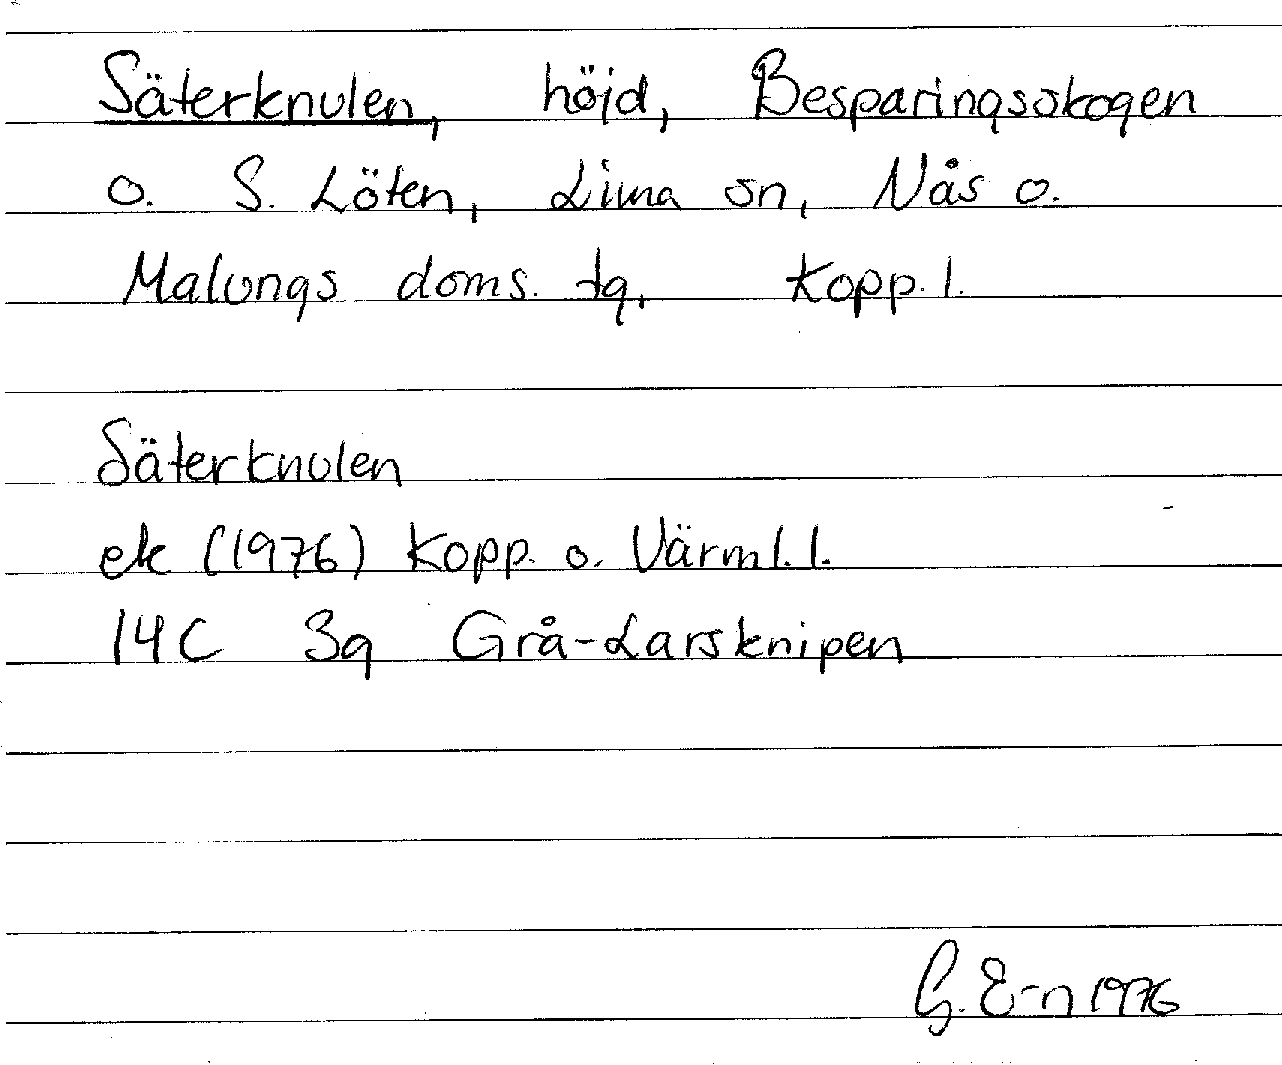 Säterknulen, höjd, Besparingsskogen
o. S. Löten, Lima sn, Nås o.
Malungs doms. tg, Kopp. l.
Säterknulen
ek (1976) Kopp. o. Värml. l.
14C 3g Grå-Larsknipen
G. E-n 1976